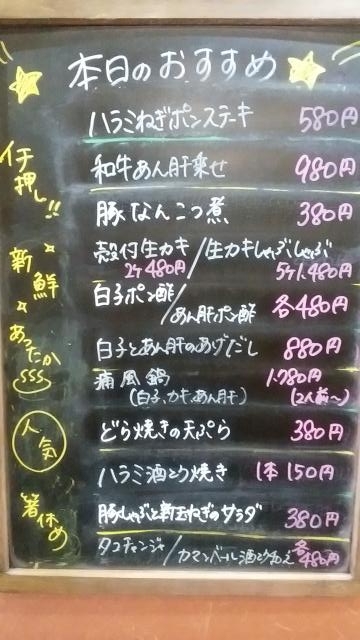 本日のおすすめ
イチ押し!!
ハラミねぎポンステーキ 580円
和牛あん肝乗せ 980円
豚なんこつ煮 380円
新鮮
殻付生カキ/生カキしゃぶしゃぶ
2ケ480円 5ケ1,480円
白子ポン酢/あん肝ポン酢 各480円
あったか
白子とあん肝のあげだし 880円
痛風鍋 1,780円
(白子、カキ、あん肝) (2人前〜)
人気
どら焼きの天ぷら 380円
ハラミ酒とろ焼き 1本 150円
箸休め
豚しゃぶと新玉ねぎのサラダ 380円
タコチャンジャ/カマンベール酒とろ和え 各480円